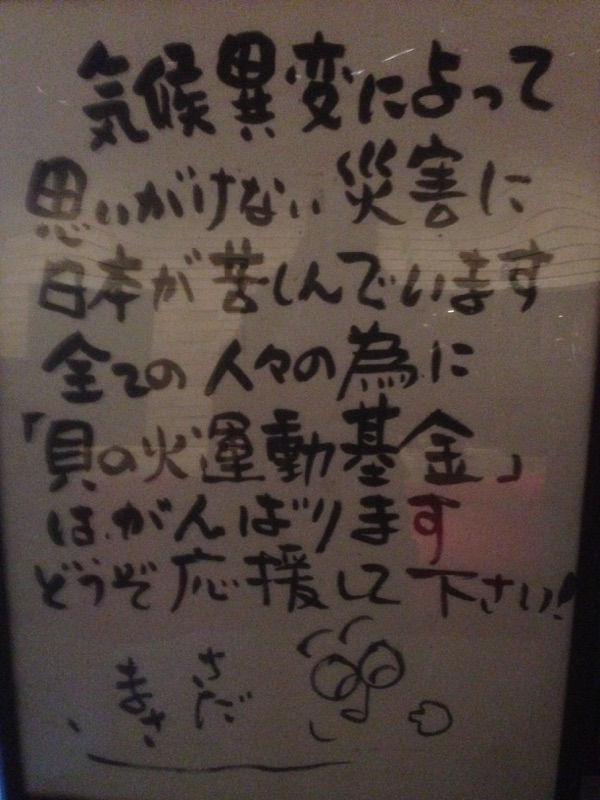 気候異変によって
思いがけない災害に
日本が苦しんでいます
全ての人々の為に
「貝の火運動基金」
はがんばります
どうぞ応援して下さい!
さだ
まさ